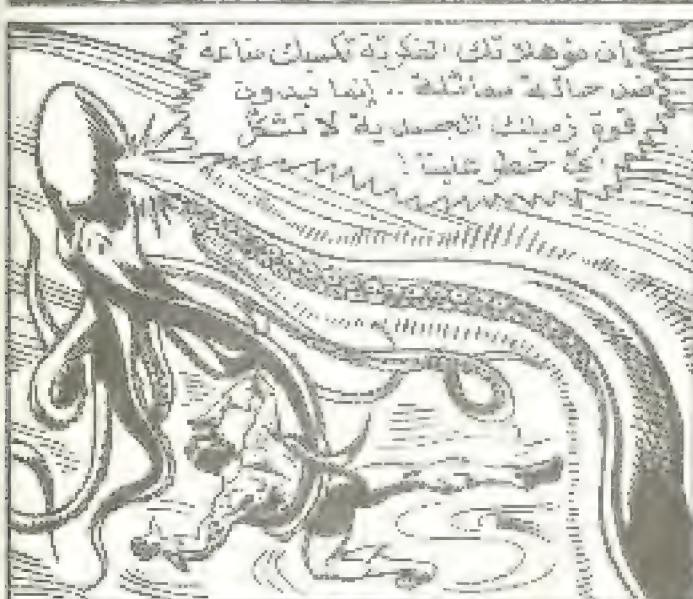 إن مؤهلاتك الفكرية تكسبك مناعة
ضد حالة مماثلة .. إنما بدون
قوة زميلك الجسدية لا تشكل
أي خطر علينا !